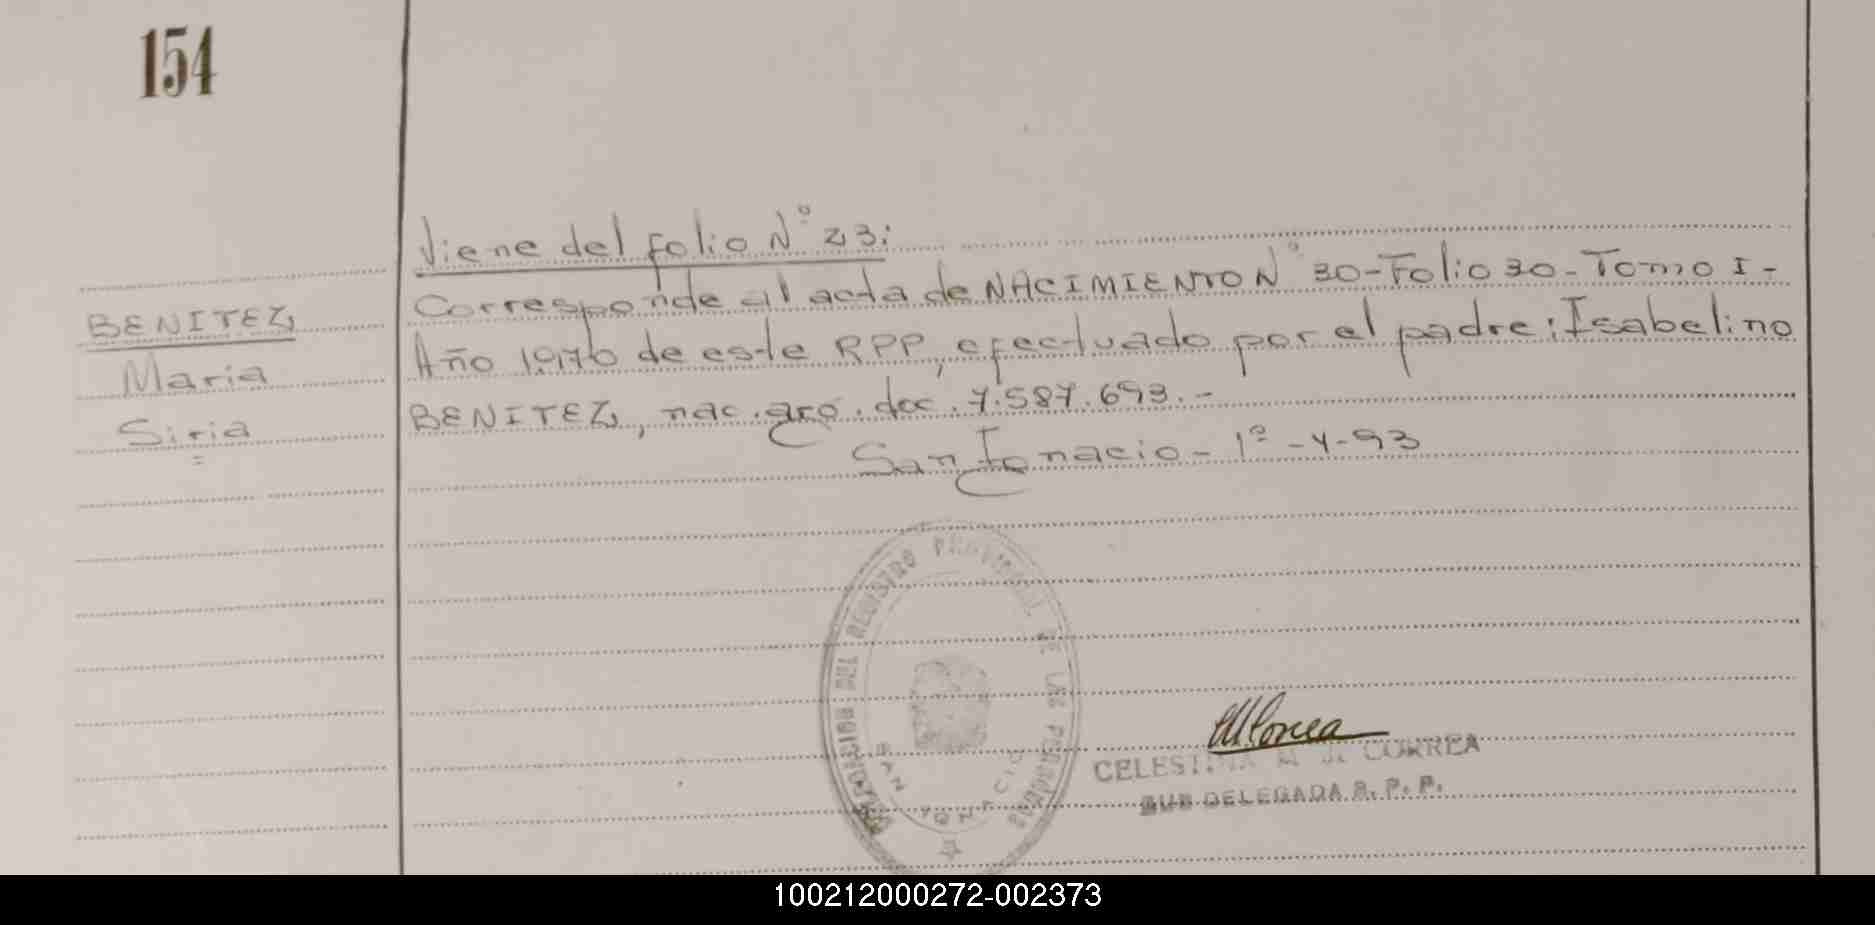 154
Viene del folio Nº 23:
Corresponde al acta de NACIMIENTO Nº 30-Folio 30-Tomo I-
Año 1976 de este RPP, efectuado por el padre: Isabelino
BENITEZ, nac. arg. doc. 7.587.693.-
San Ignacio - 1º -4-93
BENITEZ,
Maria
Siria
DEL REGISTRO PROVINCIAL DE LAS PERSONAS
SAN IGNACIO
CELESTINA M. CORREA
SUB DELEGADA R. P. P.
100212000272-002373